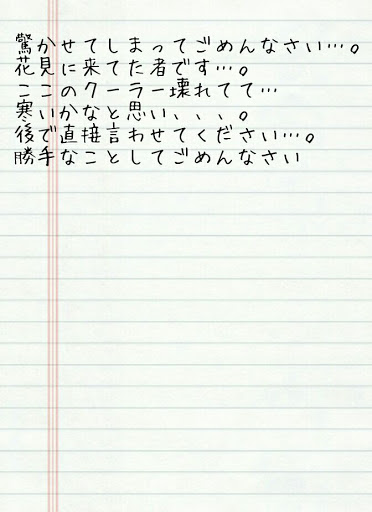 驚かせてしまってごめんなさい…。
花見に来てた者です…。
ここのクーラー壊れてて…
寒いかなと思い、、、。
後で直接言わせてください…。
勝手なことしてごめんなさい